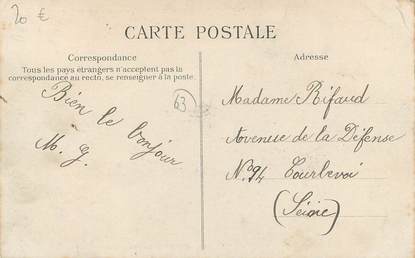 20 €
CARTE POSTALE
Correspondance
Tous les pays étrangers n'acceptent pas la
correspondance au recto, se renseigner à la poste.
Adresse
63
Bien le bonjour
M. G.
Madame Rifaud
Avenue de la Défense
N° 94 Courbevoi
(Seine)